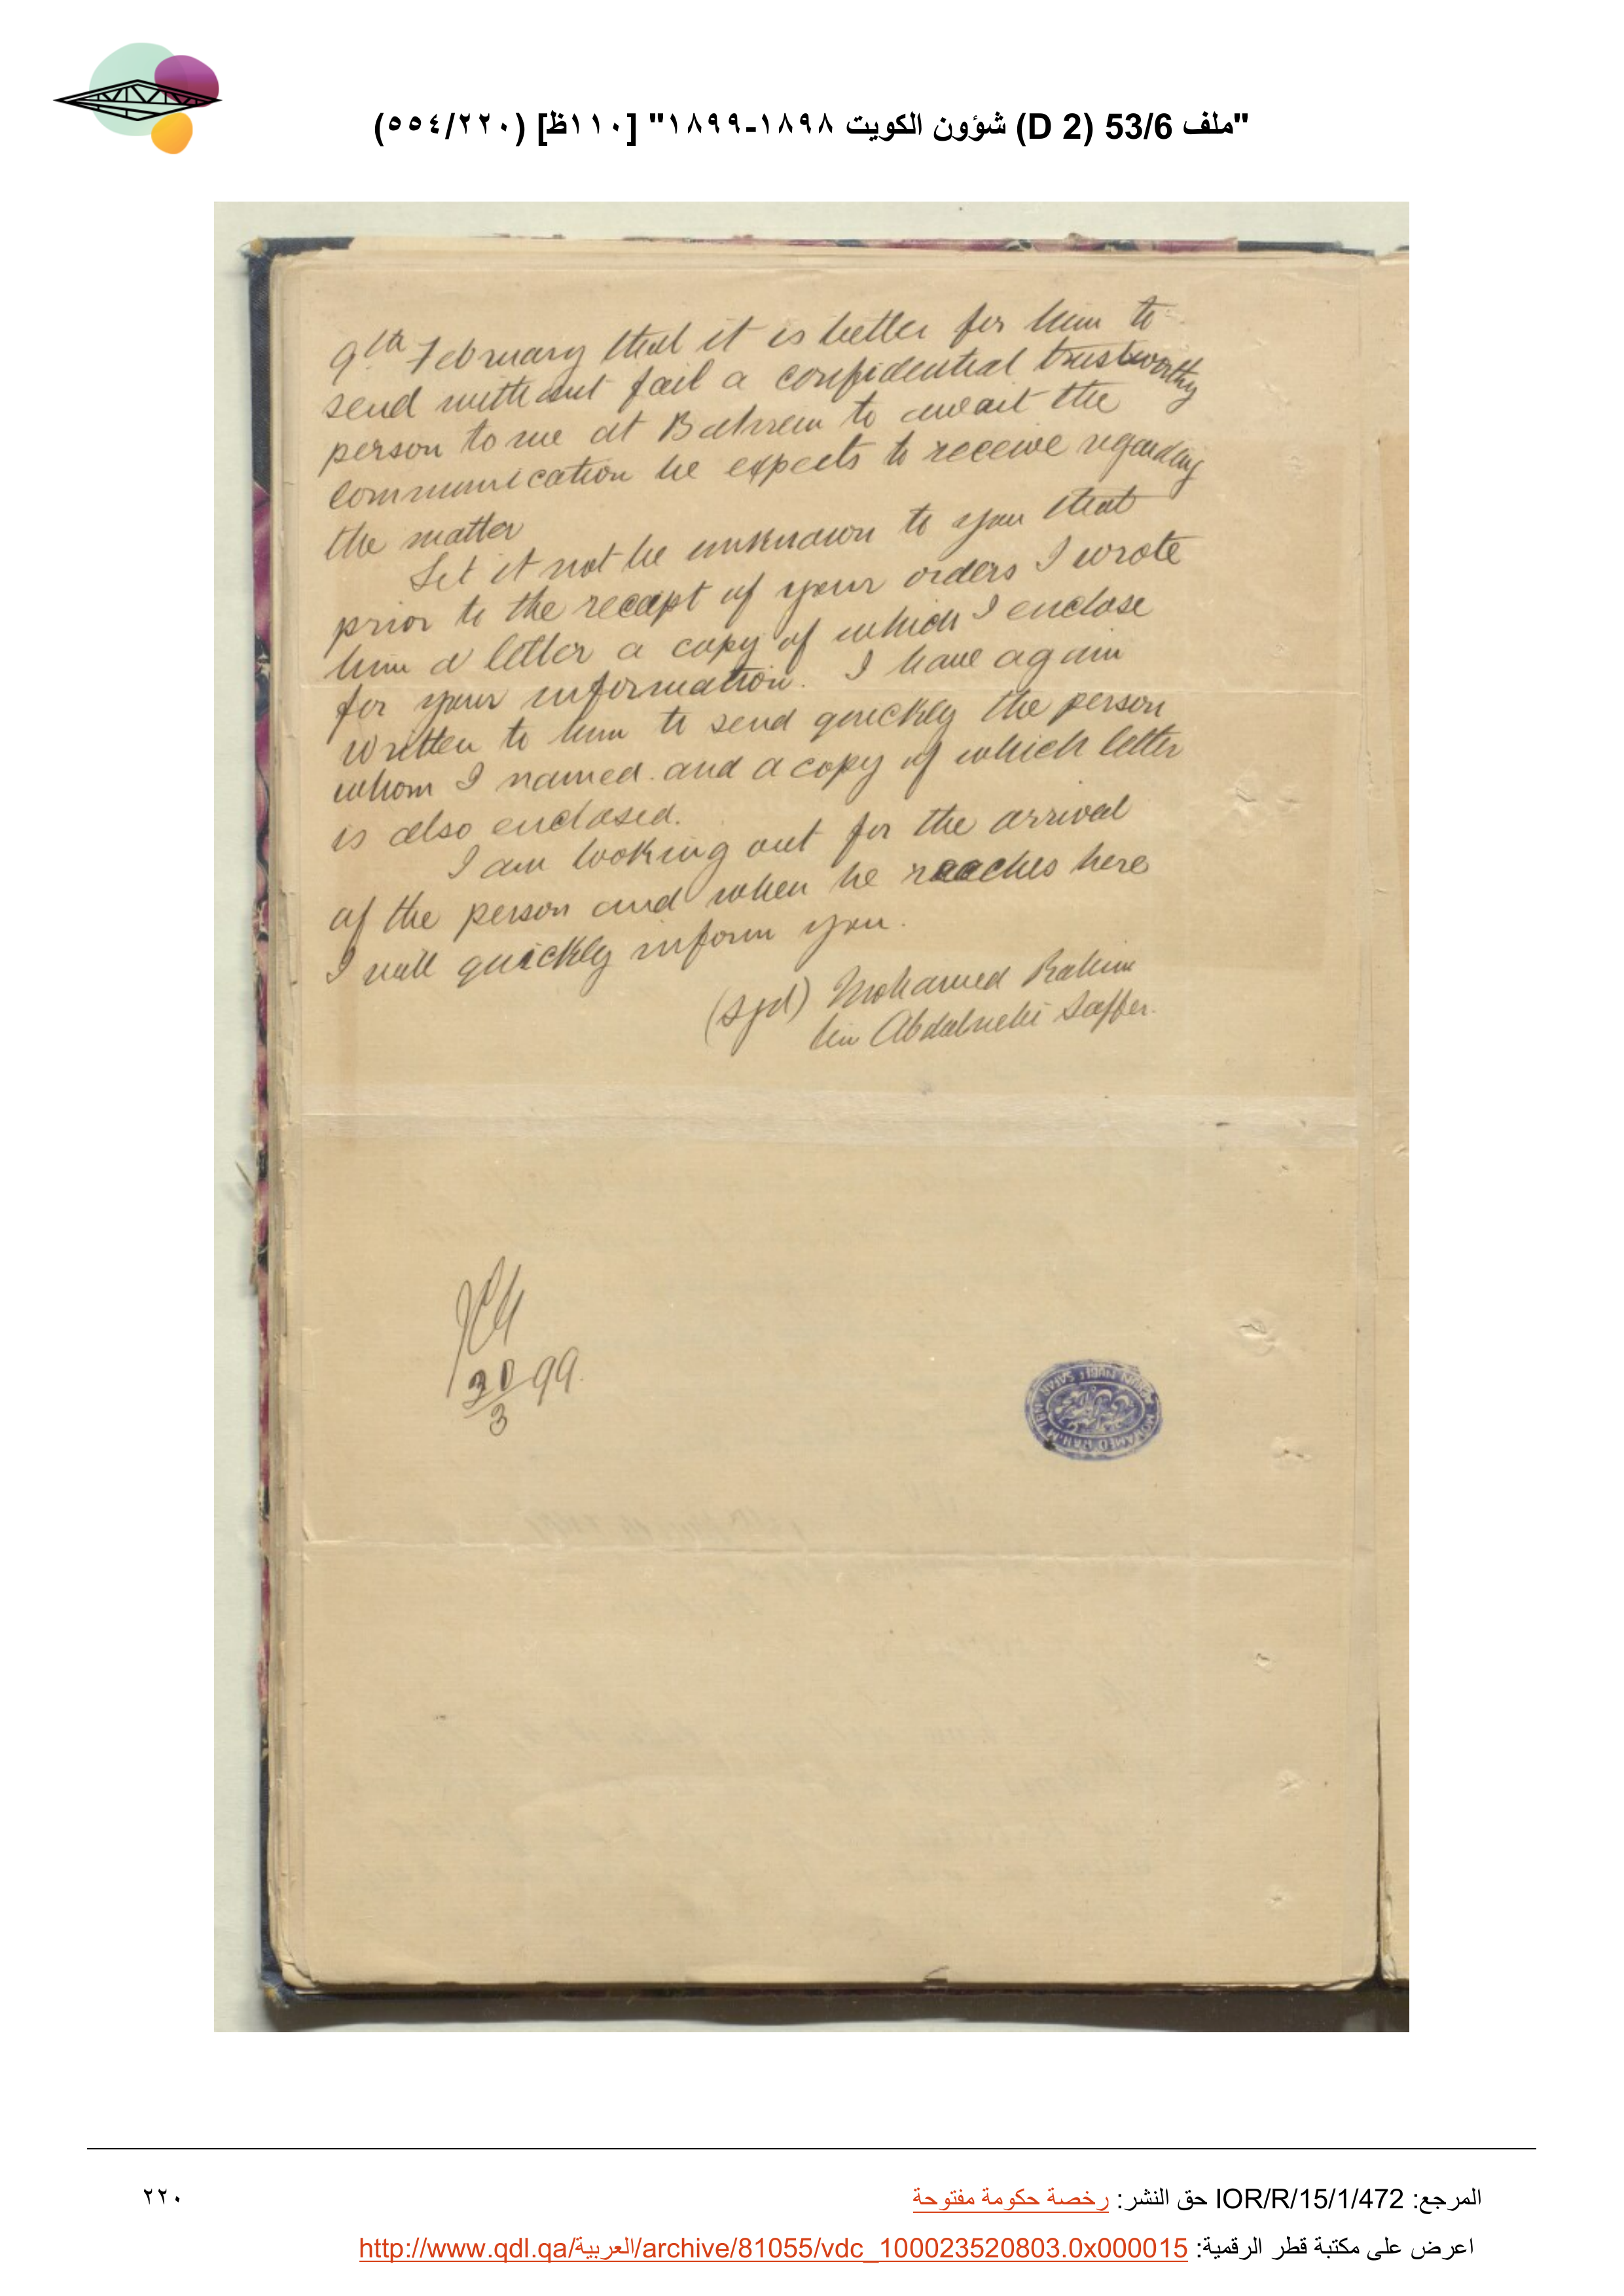 "ملف 53/6 (D 2) شؤون الكويت ١٨٩٨-١٨٩٩" [١١٠ظ] (٥٥٤/٢٢٠)
9th February that it is better for him to
send without fail a confidential trustworthy
person to me at Bahrein to await the
communication he expects to receive regarding
the matter
Let it not be unknown to you that
prior to the receipt of your orders I wrote
him a letter a copy of which I enclose
for your information. I have again
written to him to send quickly the person
whom I named. and a copy of which letter
is also enclosed.
I am looking out for the arrival
of the person and when he reaches here
I will quickly inform you.
(Sgd) Mohamed Rahim
bin Abdalnebi Saffer.
30/3 99.
MOHAMED RAHIM
SAFAR
المرجع: IOR/R/15/1/472 حق النشر: رخصة حكومة مفتوحة
٢٢٠
اعرض على مكتبة قطر الرقمية: http://www.qdl.qa/العربية/archive/81055/vdc_100023520803.0x000015